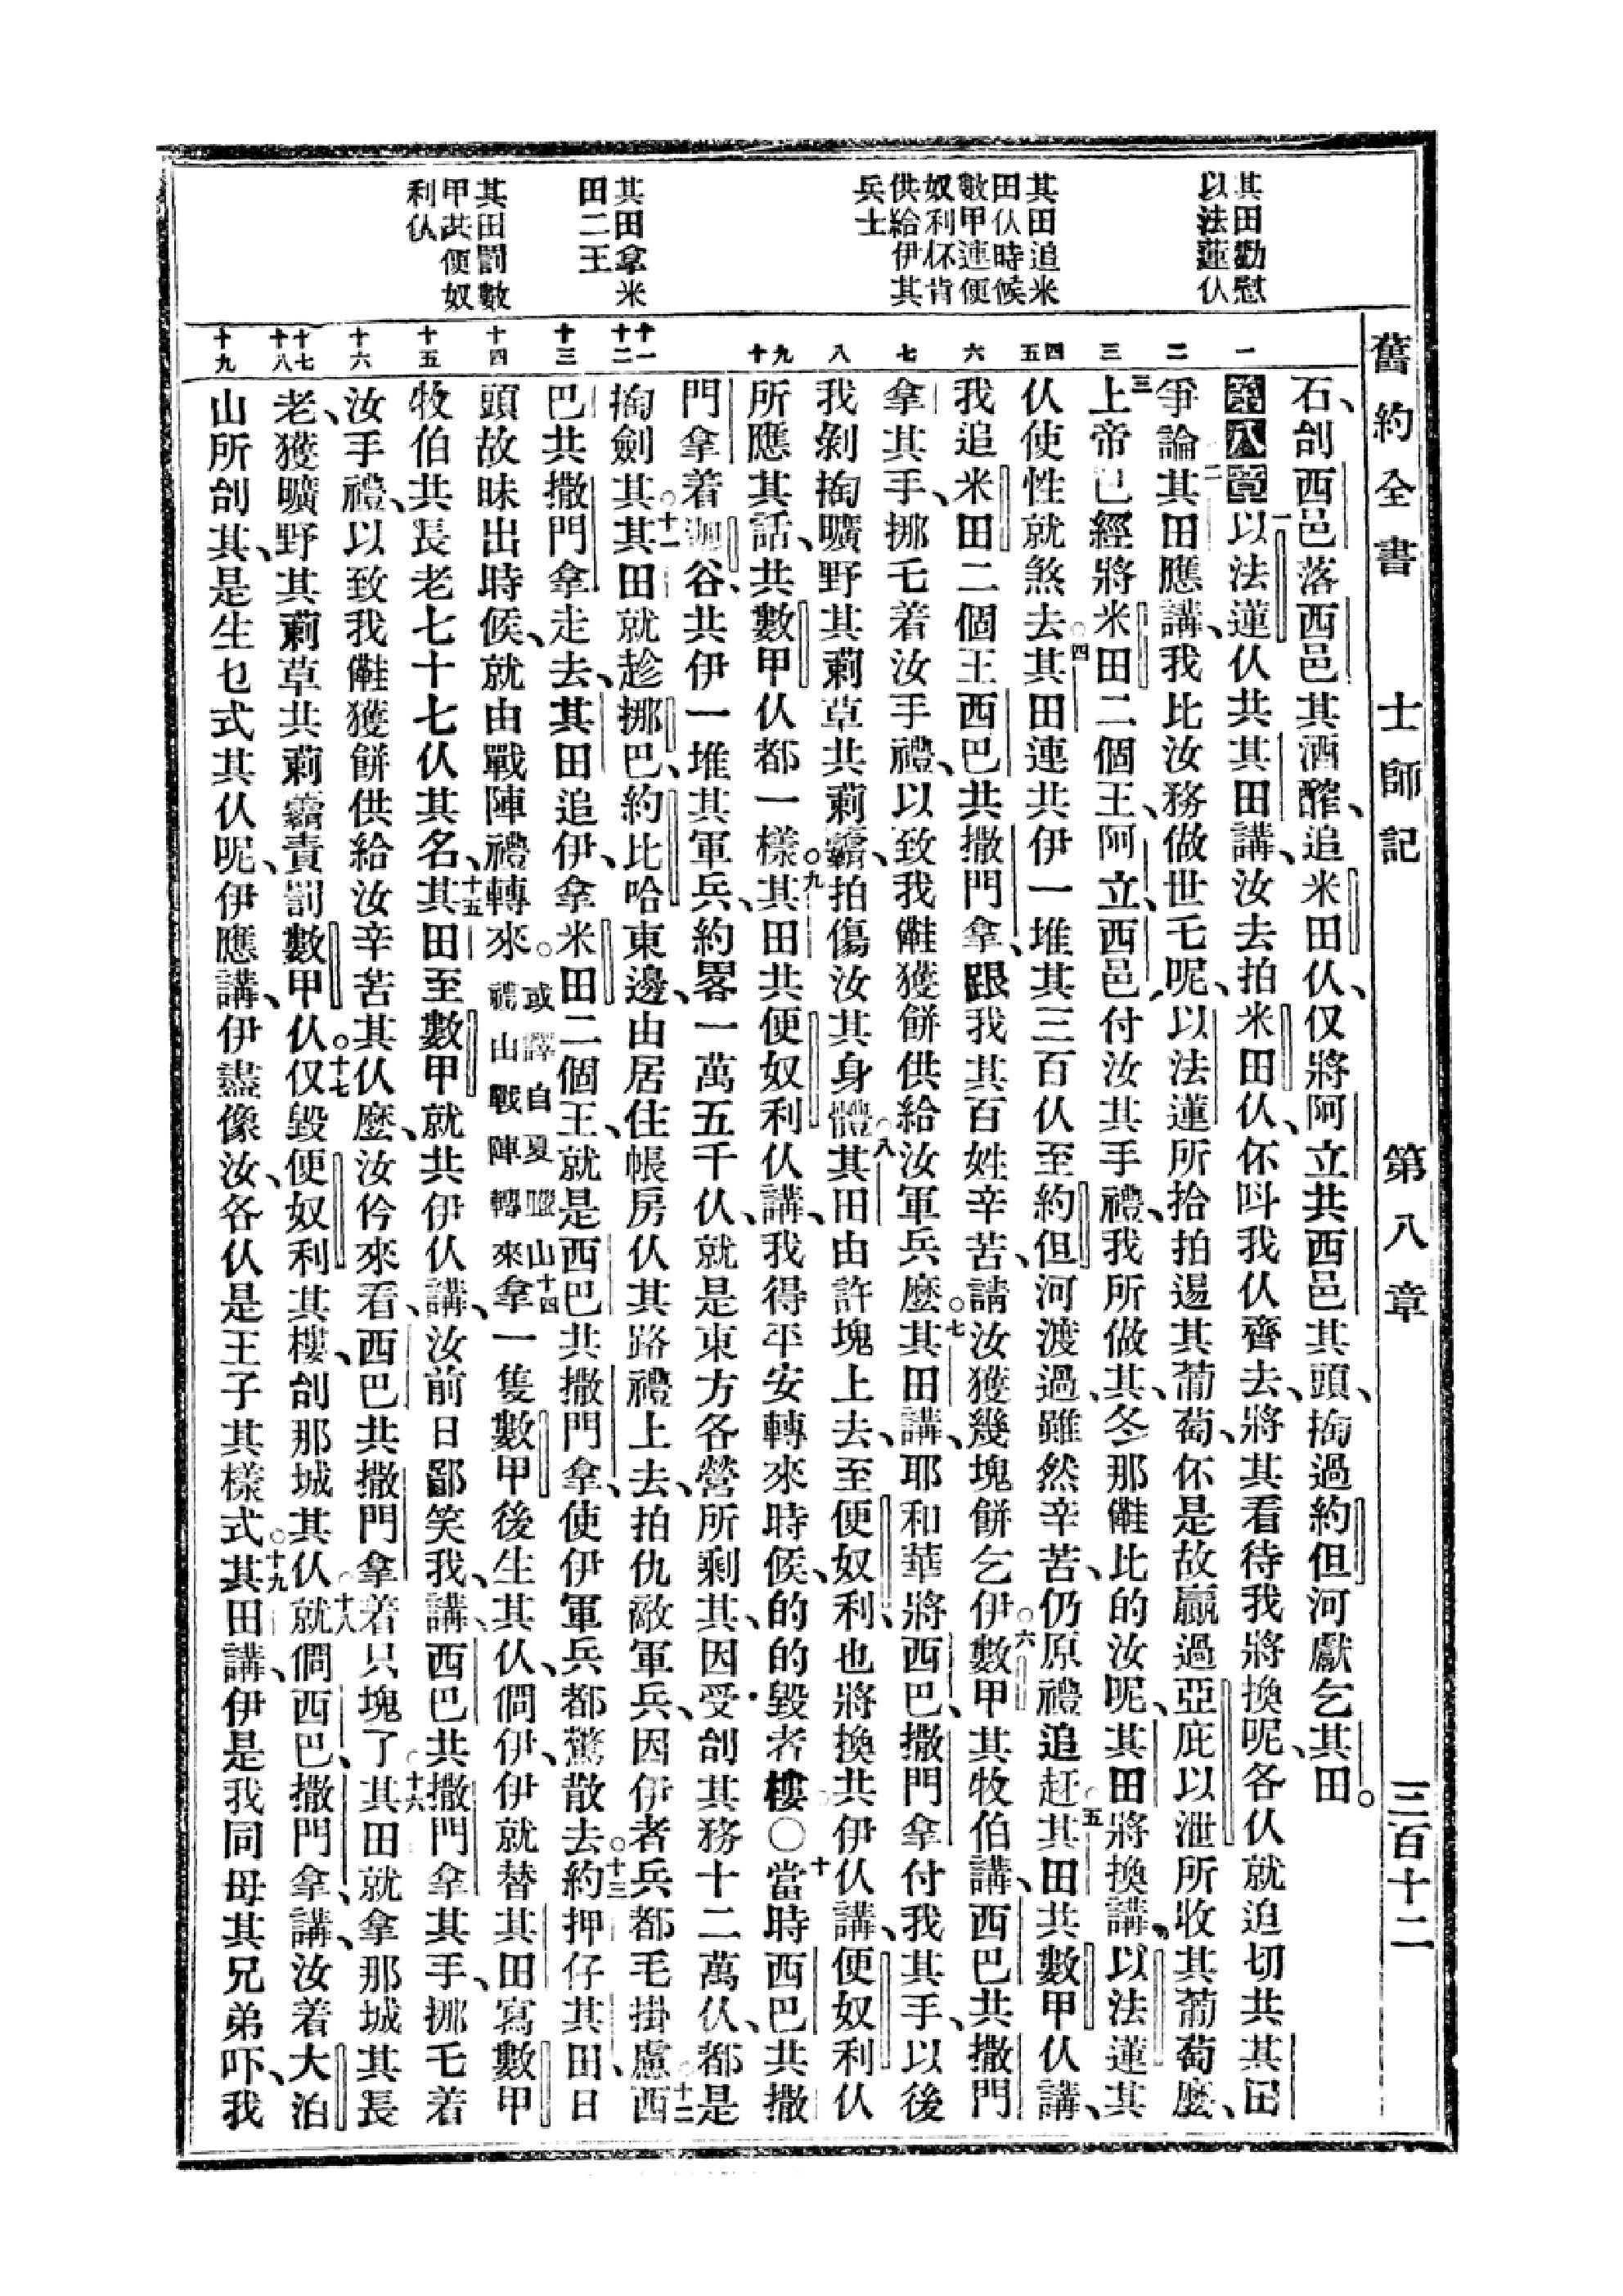 舊約全書 士師記 第八章 三百十二
其田勸慰
以法蓮仫
其田追米
田仫時候
數甲連便
奴利伓肯
供給伊其
兵士
其田拿米
田二王
其田罰數
甲共便奴
利仫
一
二
三
四
五
六
七
八
九
十
十一
十二
十三
十四
十五
十六
十七
十八
十九
石、刣西邑落西邑其酒醡、追米田仫、仅將阿立共西邑其頭、掏過約但河獻乞其田。
第八章 一以法蓮仫共其田講、汝去拍米田仫、伓呌我仫齊去、將其看待我將換呢、各仫就迫切共其田
爭論二其田應講、我比汝務做世乇呢、以法蓮所拾拍逿其葡萄、伓是故贏過亞庇以泄所收其葡萄麼、
三上帝已經將米田二個王、阿立、西邑、付汝其手禮、我所做其、冬那𫆏比的汝呢、其田將換講、以法蓮其
仫使性就煞去。四其田連共伊一堆其三百仫至約但河渡過、雖然辛苦、仍原禮追赶五其田共數甲仫講、
我追米田二個王西巴共撒門拿、跟我其百姓辛苦、請汝獲幾塊餅乞伊。六數甲其牧伯講、西巴共撒門
拿其手、挪乇着汝手禮、以致我𫆏獲餅供給汝軍兵麼。七其田講、耶和華將西巴、撒門拿付我其手、以後
我剝掏曠野其莿草共莿霸、拍傷汝其身體。八其田由許塊上去、至便奴利、也將換共伊仫講、便奴利仫
所應其話、共數甲仫都一樣。九其田共便奴利仫講、我得平安轉來時候、的的毀者樓〇十當時西巴共撒
門拿着泇谷、共伊一堆其軍兵、約畧一萬五千仫、就是東方各營所剩其、因受刣其務十二萬仫、都是
掏劍其。十一其田就趁挪巴、約比哈東邊、由居住帳房仫其路禮上去、拍仇敵軍兵、因伊者兵都毛掛慮十二西
巴共撒門拿走去、其田追伊、拿米田二個王、就是西巴共撒門拿、使伊軍兵都驚散去。十三約押仔其田、日
頭故昧出時候、就由戰陣禮轉來。或譯自夏𫆏山禮山戰陣轉來十四拿一隻數甲後生其仫、倜伊、伊就替其田寫數甲
牧伯共長老七十七仫其名、十五其田至數甲就共伊仫講、汝前日鄙笑我、講、西巴共撒門拿其手、挪乇着
汝手禮、以致我𫆏獲餅供給汝辛苦其仫麼、汝伶來看、西巴共撒門拿着只塊了。十六其田就拿那城其長
老、獲曠野其莿草共莿霸、責罰數甲仫。十七仅毀便奴利其樓、刣那城其仫。十八就倜西巴、撒門拿、講、汝着大泊
山所刣其、是生乜式其仫呢、伊應講、伊盡像汝、各仫是王子其樣式。十九其田講、伊是我同母其兄弟吓、我